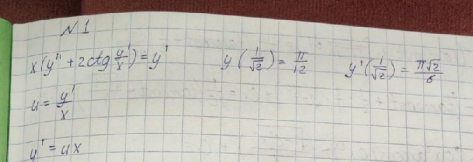 N1
x(y'' + 2ctg y'/x) = y' y(1/√2) = π/12 y'(1/√2) = π√2/6
u = y'/x
y' = ux